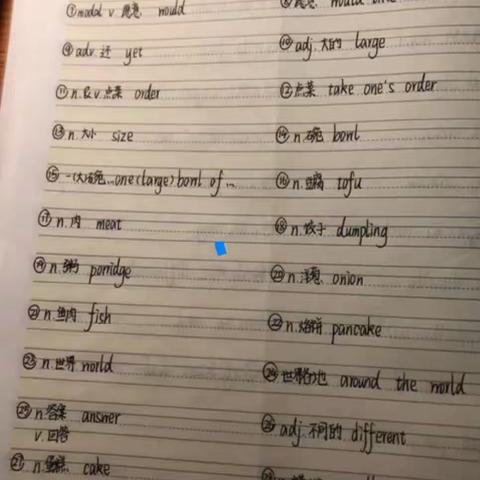 ⑦modal v. 愿意 would
⑨ adv. 还 yet
⑩ adj. 大的 large
⑪ n.&v. 点菜 order
⑫ 点菜 take one's order
⑬ n. 大小 size
⑭ n. 碗 bowl
⑮ 一(大)碗… one(large) bowl of …
⑯ n. 豆腐 tofu
⑰ n. 肉 meat
⑱ n. 饺子 dumpling
⑲ n. 粥 porridge
⑳ n. 洋葱 onion
㉑ n. 鱼肉 fish
㉒ n. 烙饼 pancake
㉓ n. 世界 world
㉔ 世界各地 around the world
㉕ n. 答案 answer
v. 回答
㉖ adj. 不同的 different
㉗ n. 蛋糕 cake